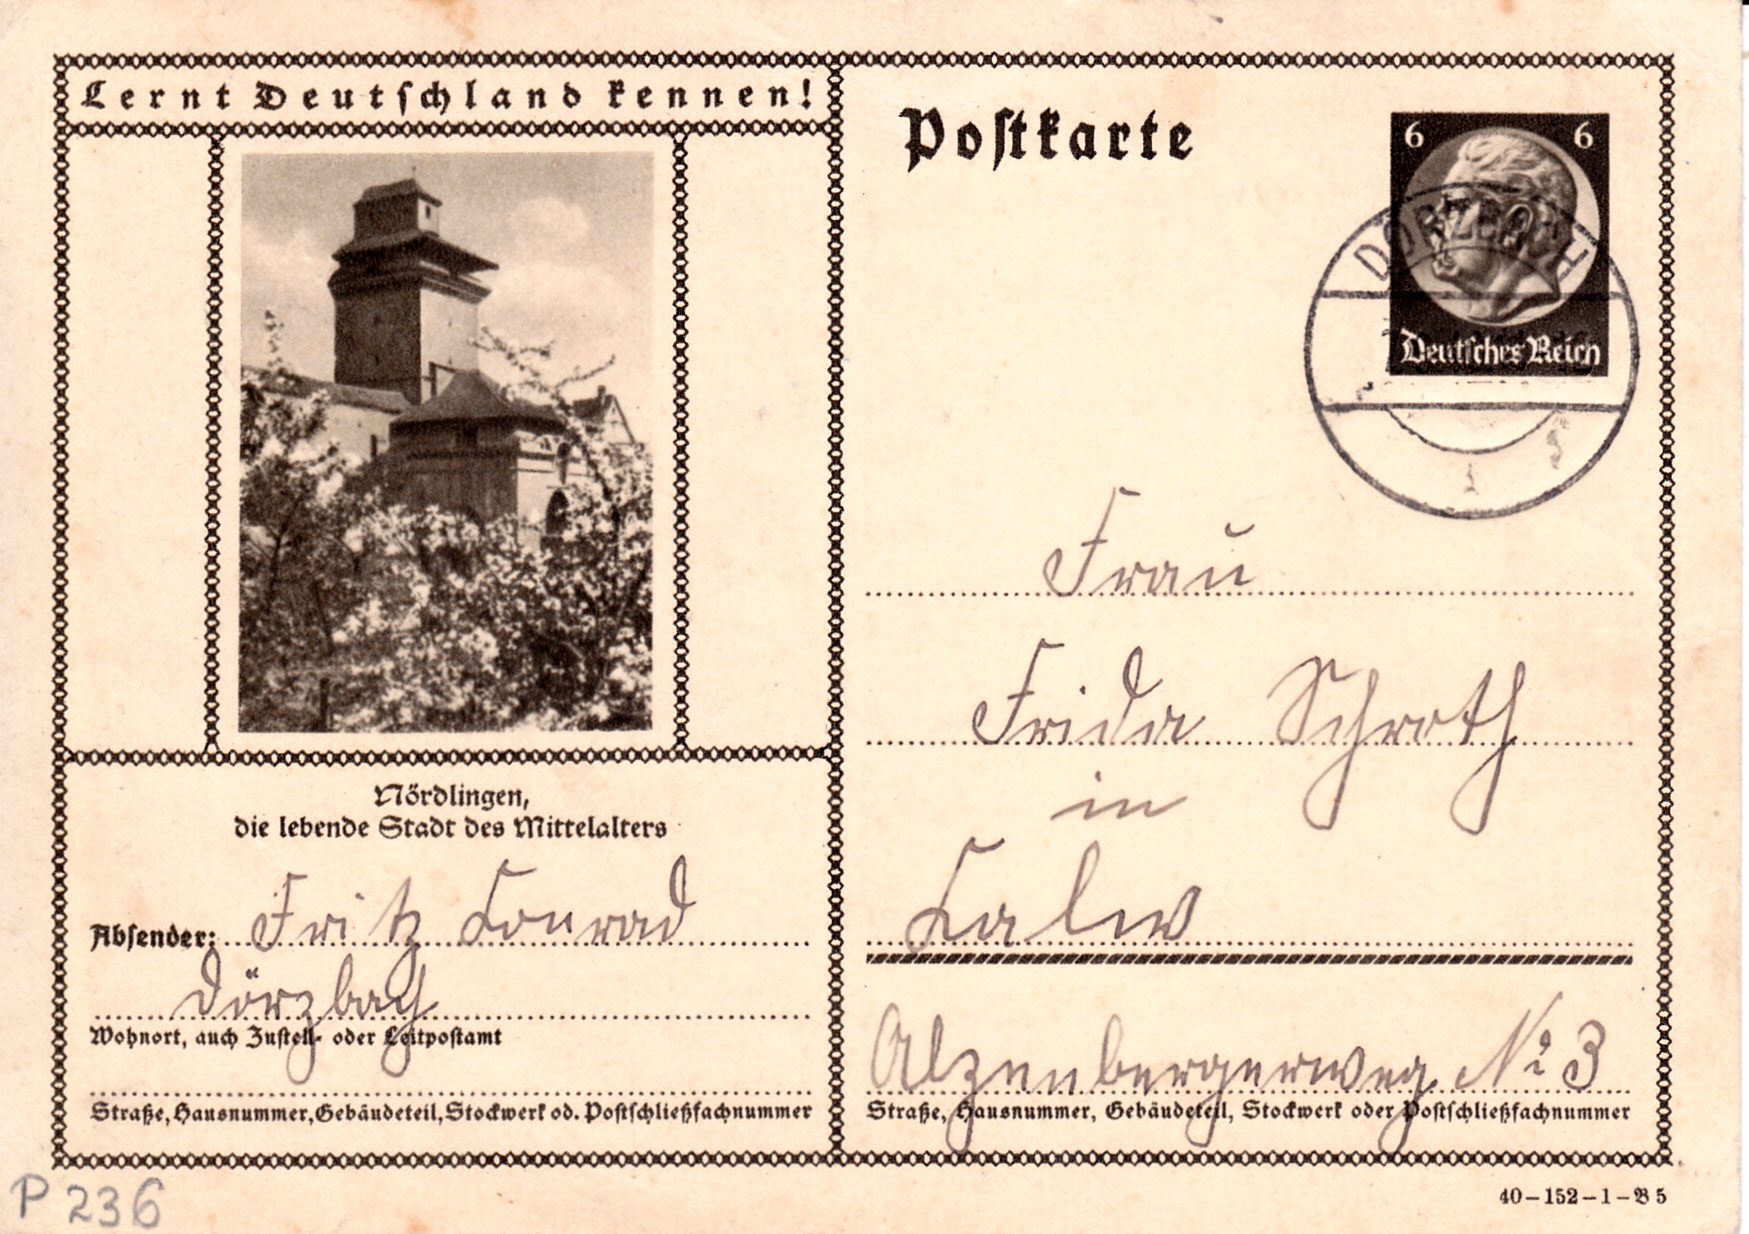 Lernt Deutschland kennen!
Postkarte
6 6
Deutsches Reich
DÖRZBACH
Nördlingen,
die lebende Stadt des Mittelalters
Absender: Fritz Conrad
Dörzbach
Wohnort, auch Zustell- oder Leitpostamt
Straße, Hausnummer, Gebäudeteil, Stockwerk od. Postschließfachnummer
Frau
Frida Schroth
in
Calw
Alzenbergerweg No 3
Straße, Hausnummer, Gebäudeteil, Stockwerk oder Postschließfachnummer
P 236
40-152-1-B 5